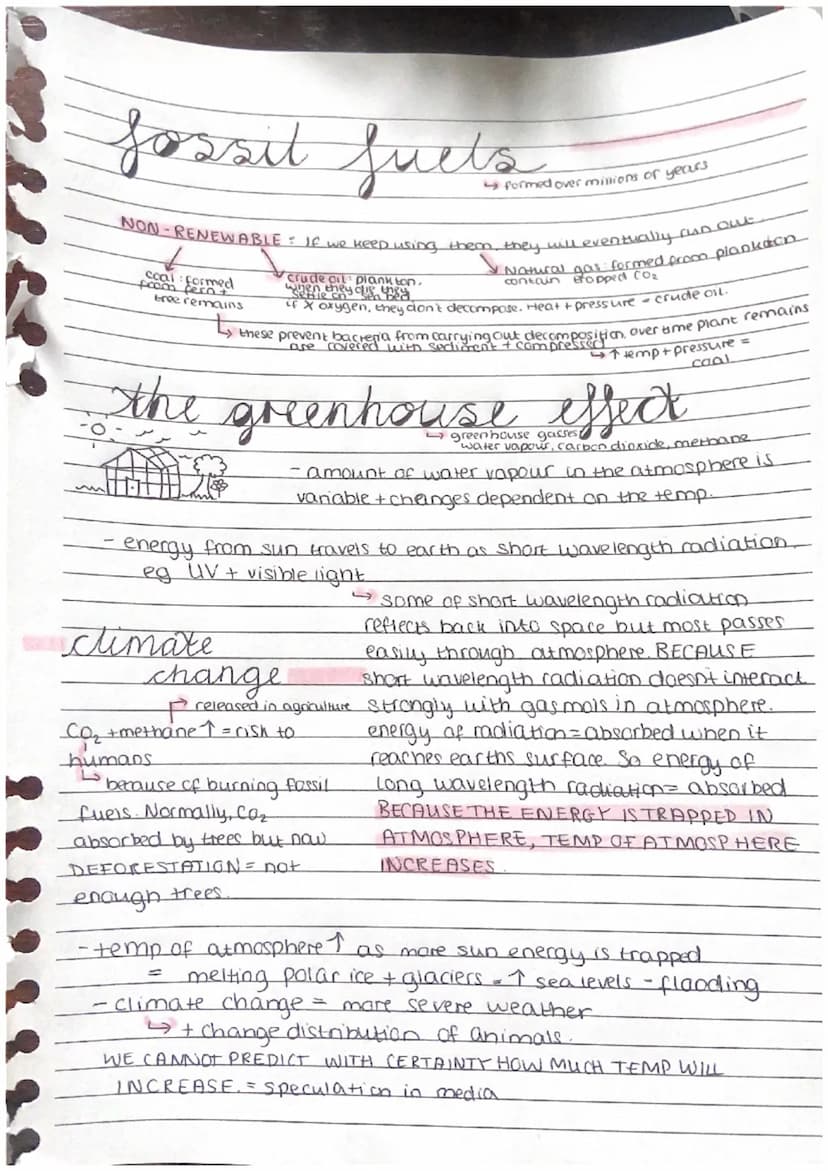 fossil fuels
↳ formed over millions of years
NON-RENEWABLE = If we keep using them, they will eventually run out
coal: formed
from fern +
tree remains
crude oil: plankton.
when they die they
settle on sea bed
if X oxygen, they don't decompose. Heat + pressure = crude oil.
Natural gas: formed from plankton
contain trapped CO₂
↳ these prevent bacteria from carrying out decomposition. over time plant remains
are covered with sediment + compressed
↳ ↑ temp + pressure =
coal
the greenhouse effect
↳ greenhouse gasses
water vapour, carbon dioxide, methane
- amount of water vapour in the atmosphere is
variable + changes dependent on the temp.
- energy from sun travels to earth as short wavelength radiation
eg UV + visible light
↳ some of short wavelength radiation
reflects back into space but most passes
easily through atmosphere. BECAUSE
short wavelength radiation doesn't interact
strongly with gas mols in atmosphere.
energy of radiation = absorbed when it
reaches earths surface. So energy of
long wavelength radiation = absorbed
BECAUSE THE ENERGY IS TRAPPED IN
ATMOSPHERE, TEMP OF ATMOSPHERE
INCREASES.
climate
change
released in agriculture
CO₂ + methane ↑ = risk to
humans
↳ because of burning fossil
fuels. Normally, CO₂
absorbed by trees but now
DEFORESTATION = not
enough trees.
- temp of atmosphere ↑ as more sun energy is trapped
= melting polar ice + glaciers = ↑ sea levels - flooding
- climate change = more severe weather
↳ + change distribution of animals.
WE CANNOT PREDICT WITH CERTAINTY HOW MUCH TEMP WILL
INCREASE. = speculation in media